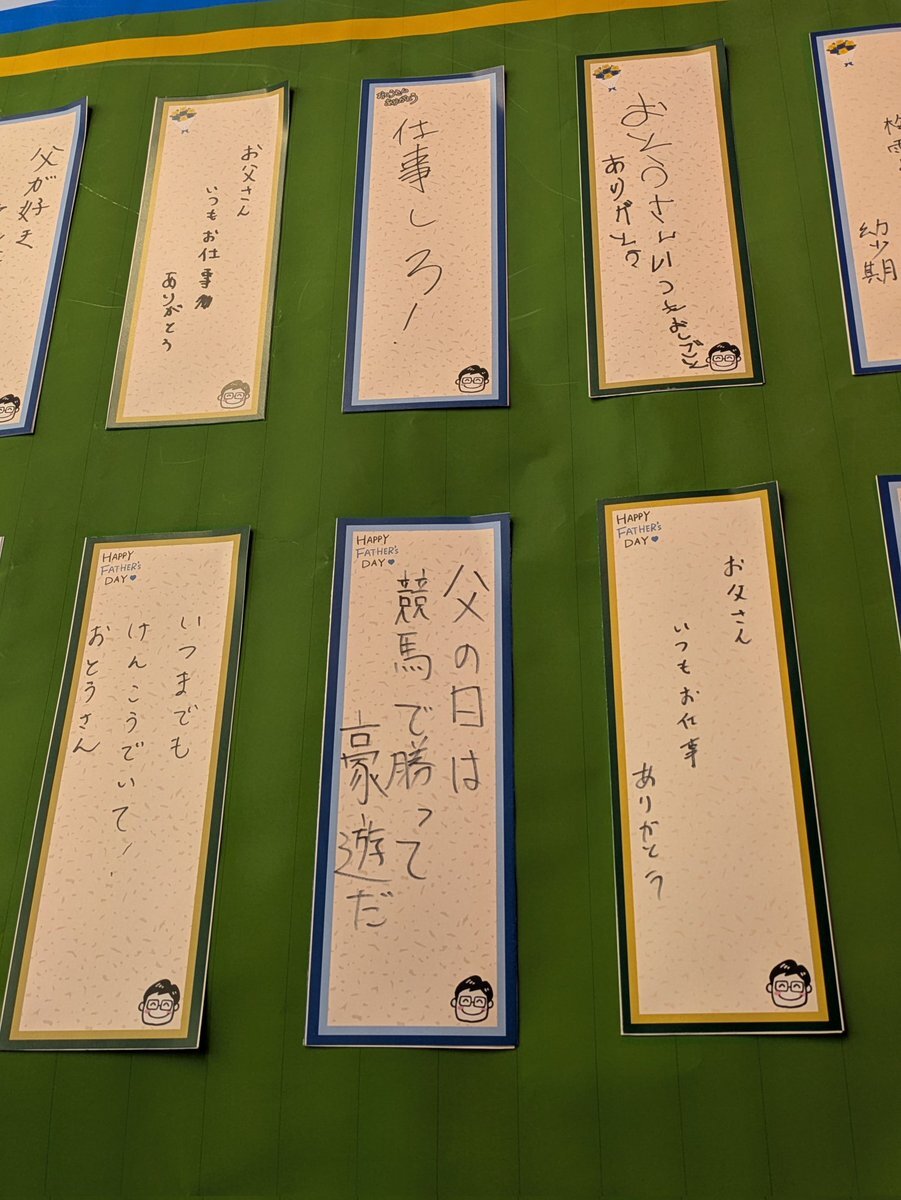 父が子
好き
お父さん
いつもお仕事
ありがとう
おとうさん
ありがとう
仕事しろ!
おとうさんいつもおしごと
ありがとう
幼少期
HAPPY
FATHER's
DAY
いつまでも
けんこうでいて!
おとうさん
HAPPY
FATHER's
DAY
父の日は
競馬で勝って
豪遊だ
HAPPY
FATHER's
DAY
お父さん
いつもお仕事
ありがとう